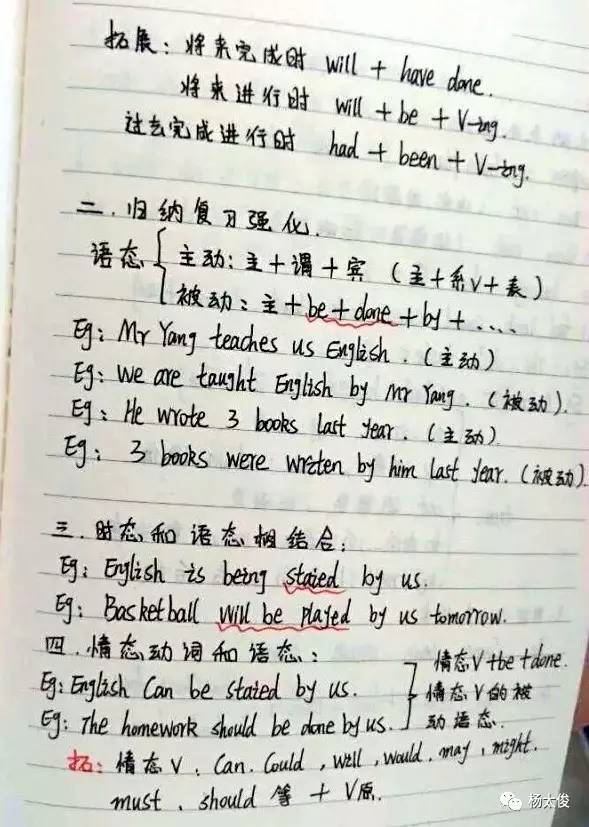 拓展：将来完成时 will + have done.
将来进行时 will + be + V-ing.
过去完成进行时 had + been + V-ing.
二.归纳复习强化.
语态 { 主动：主+谓+宾 (主+系V+表)
被动：主+be+done+by+....
Eg: Mr Yang teaches us English. (主动)
Eg: We are taught English by Mr Yang. (被动).
Eg: He wrote 3 books last year. (主动)
Eg: 3 books were wreten by him last year. (被动)
三.时态和语态相结合：
Eg: English is being staied by us.
Eg: Basketball will be played by us tomorrow.
四.情态动词和语态：
Eg: English Can be staied by us.
Eg: The homework should be done by us.
情态V+be+done.
情态V的被
动语态.
拓：情态V：Can. Could, will, would. may, might.
must、should 等 + V原.
杨太俊